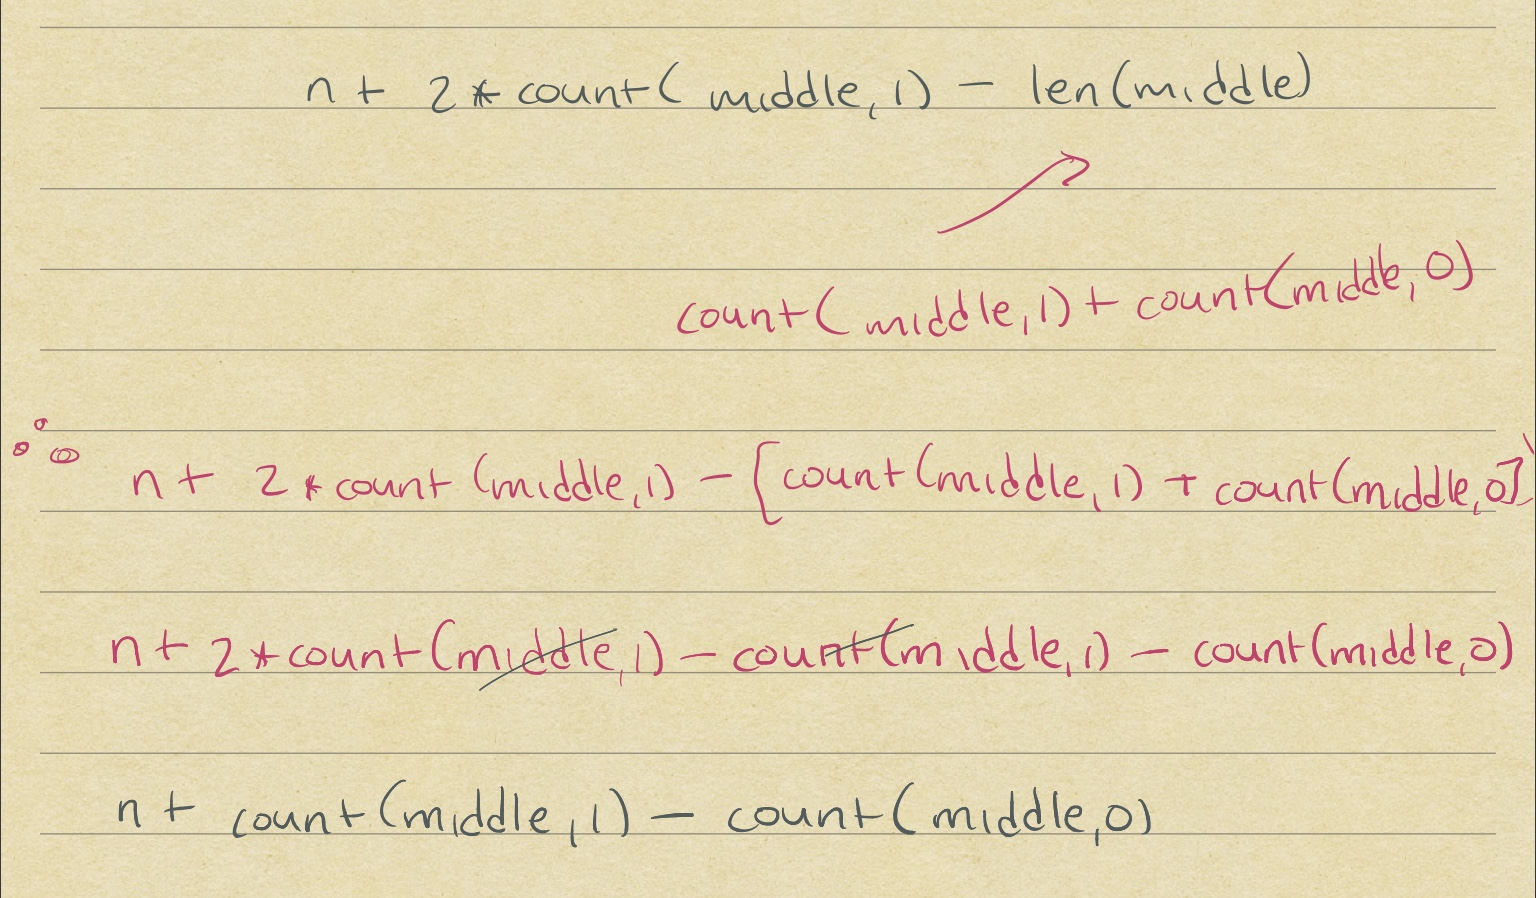 n + 2*count(middle,1) - len(middle)
count(middle,1) + count(middle,0)
n + 2*count(middle,1) - [count(middle,1) + count(middle,0)]
n + 2*count(middle,1) - count(middle,1) - count(middle,0)
n + count(middle,1) - count(middle,0)